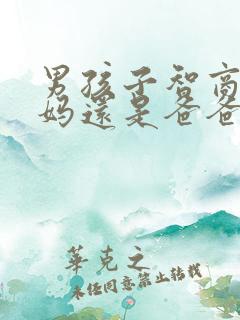 男孩子智商
妈還是爸爸
華克之
未经同意禁止转载